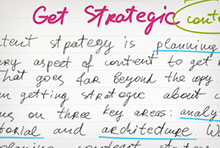 Get Strategic cont
tent strategy is planning
ery aspect of content to get
hat goes far beyond the copy
n getting strategic about c
ns on three key areas: analy
torial and architecture W